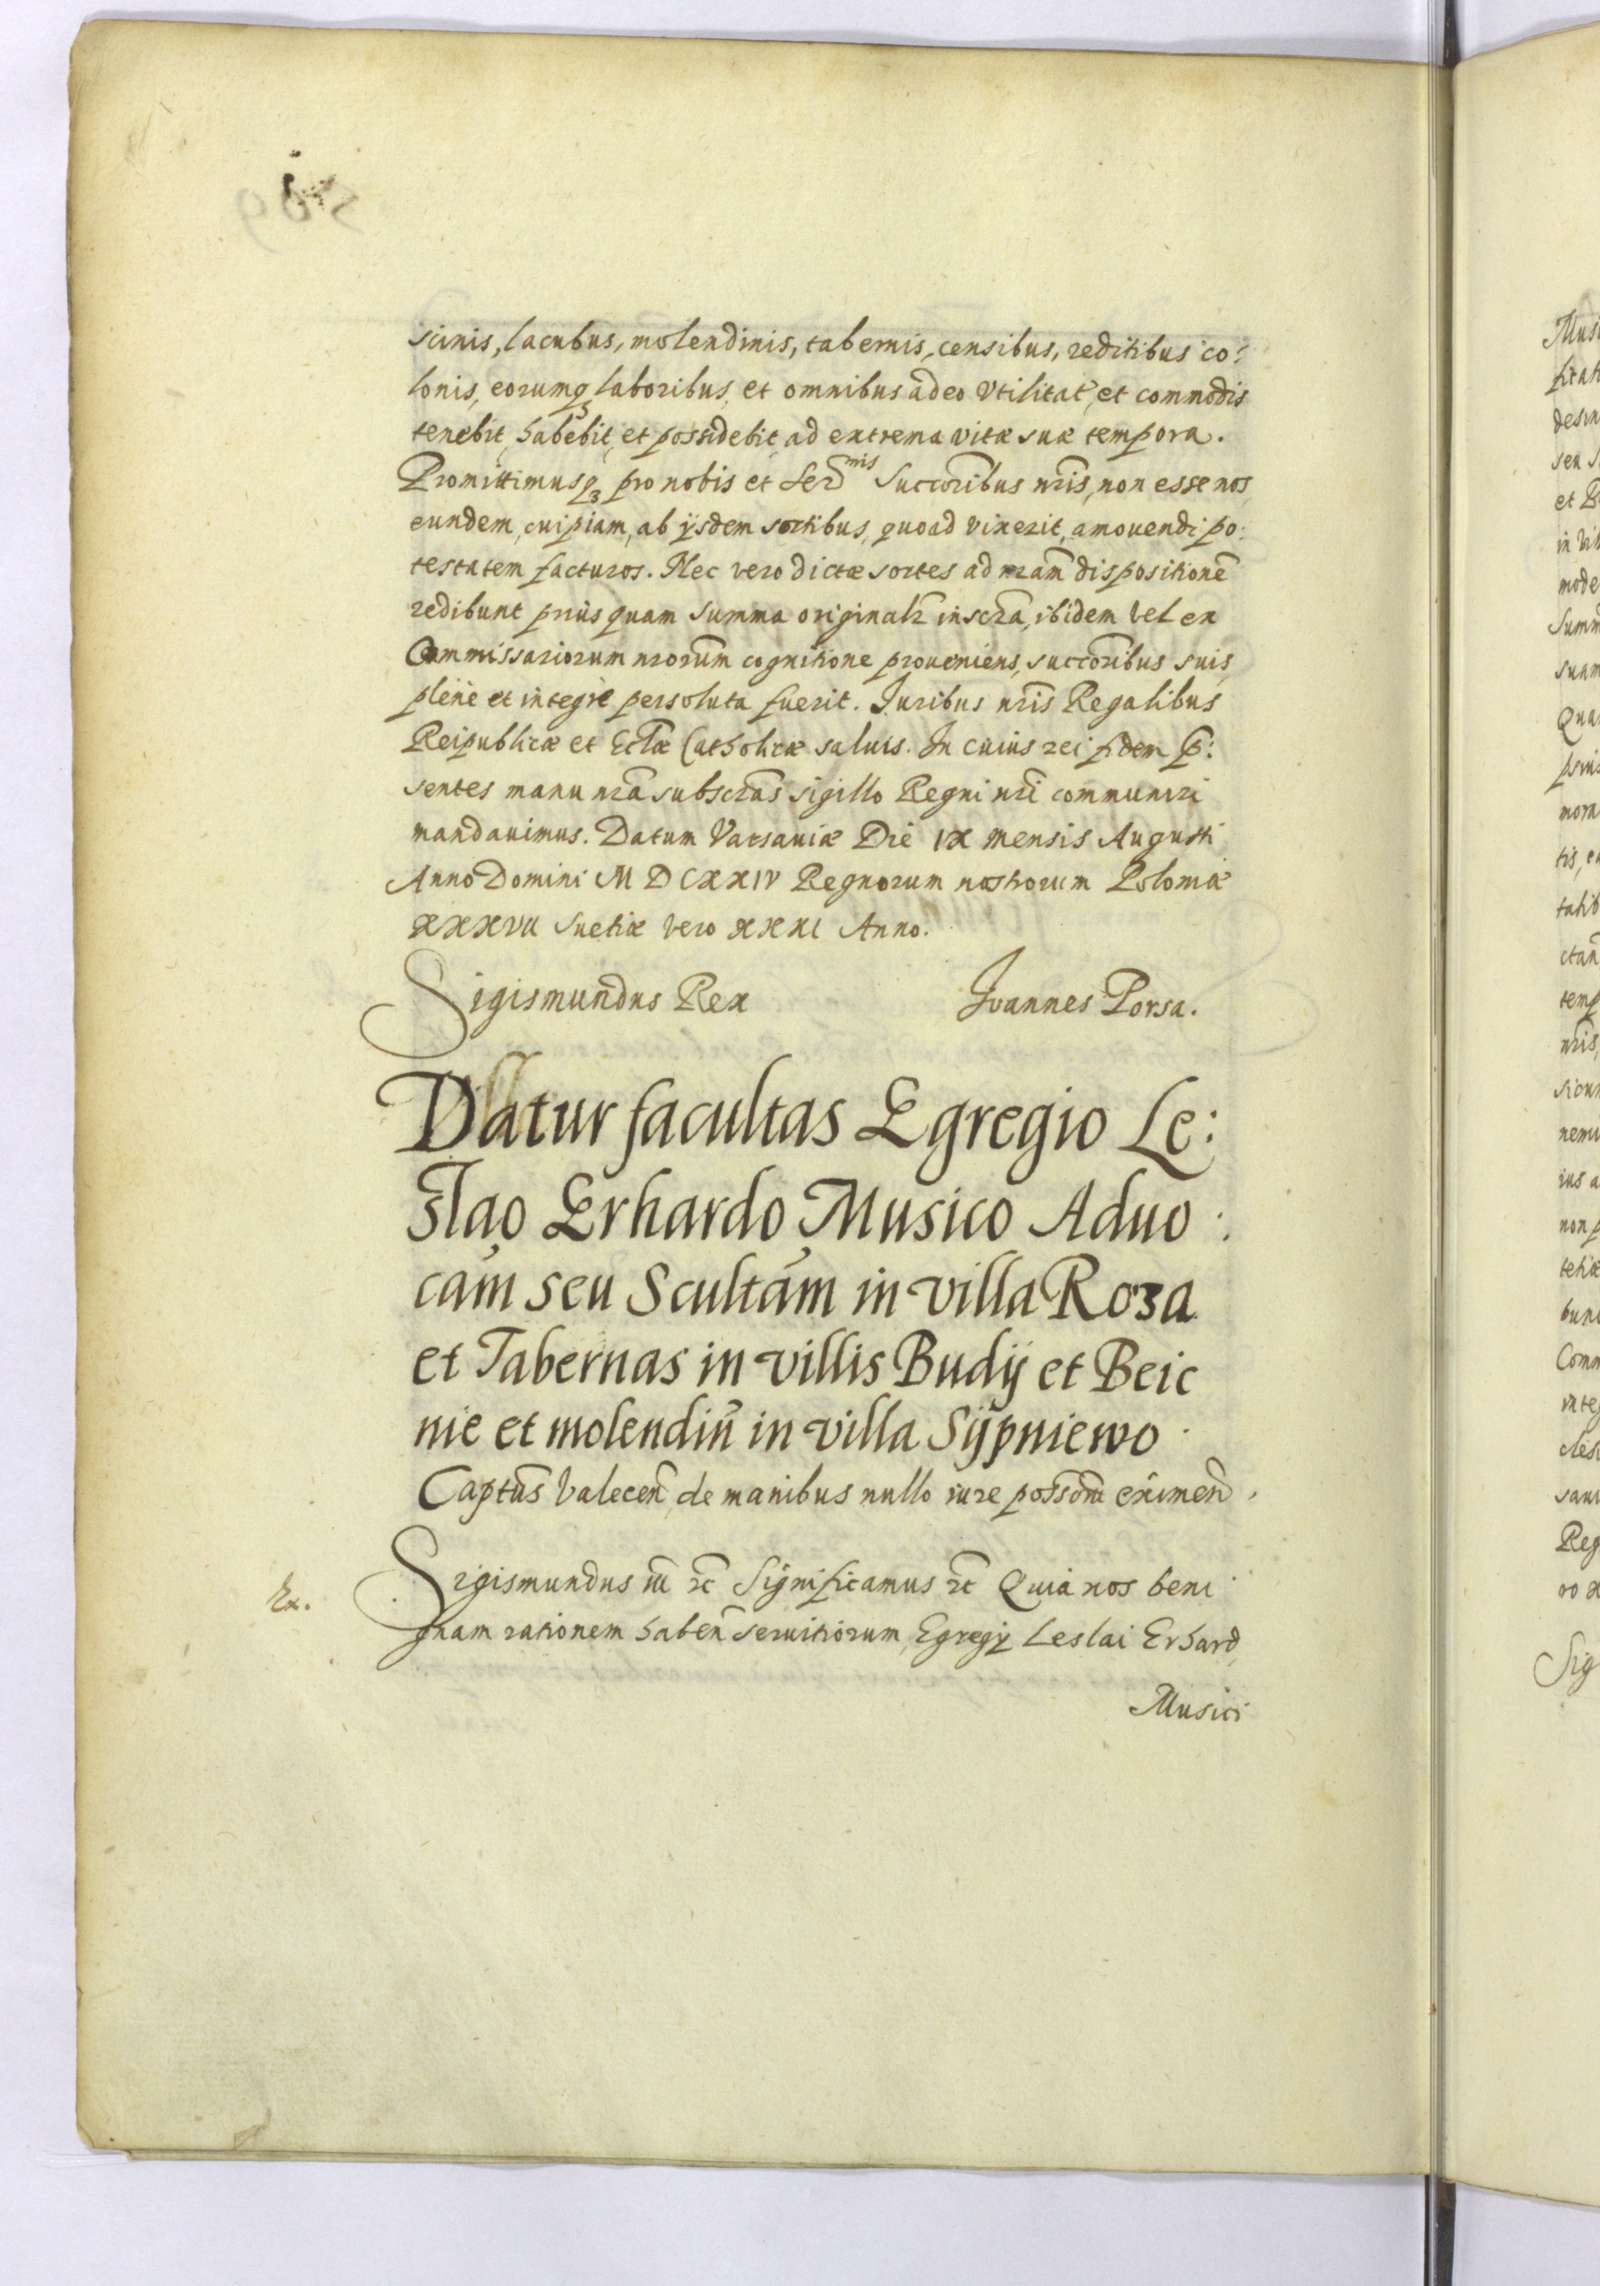 scinis, lacubus, molendinis, tabernis, censibus, reditibus co:
lonis, eorumqꝫ laboribus, et omnibus adeo vtilitat, et commodis
tenebit, habebit, et possidebit, ad extrema vitæ suæ tempora.
Promittimusqꝫ pro nobis et Ser̃nis Succorībus nrīs, non esse nos
eundem, cuipiam, ab ijsdem sortibus, quoad vixerit, amouendi po:
testatem facturos. Nec vero dictæ sortes ad nr̃am dispositionē
redibunt priùs quam summa originalr̃ inscr̃a, ibidem vel ex
Commissariorum nrorũm cognitione proueniens, succorībus suis
plenè et integrè persoluta fuerit. Juribus nrīs Regalibus
Reipublicæ et Eclæ Catholicæ saluis. In cuius rei fidem p̃:
sentes manu nr̃a subscr̃as sigillo Regni nrī communiri
mandauimus. Datum Varsauiæ Die IX mensis Augusti
Anno Domini M D CXXIV Regnorum nostrorum Poloniæ
XXXVII Suetiæ vero XXXI Anno.
Sigismundus Rex Joannes Porsa.
Datur facultas Egregio Le:
slao Erhardo Musico Aduo:
cam̃ seu Scultam̃ in villa Roza
et Tabernas in villis Budij et Beic
nie et molendiñ in villa Sijpniewo
Captũs Valeceñ de manibus nullo iure possorũ eximeñ.
Ex.
Sigismundus iii rc̃ Significamus rc̃ Quia nos beni
gnam rationem habeñ seruitiorum, Egregij Leslai Erhard,
Musici